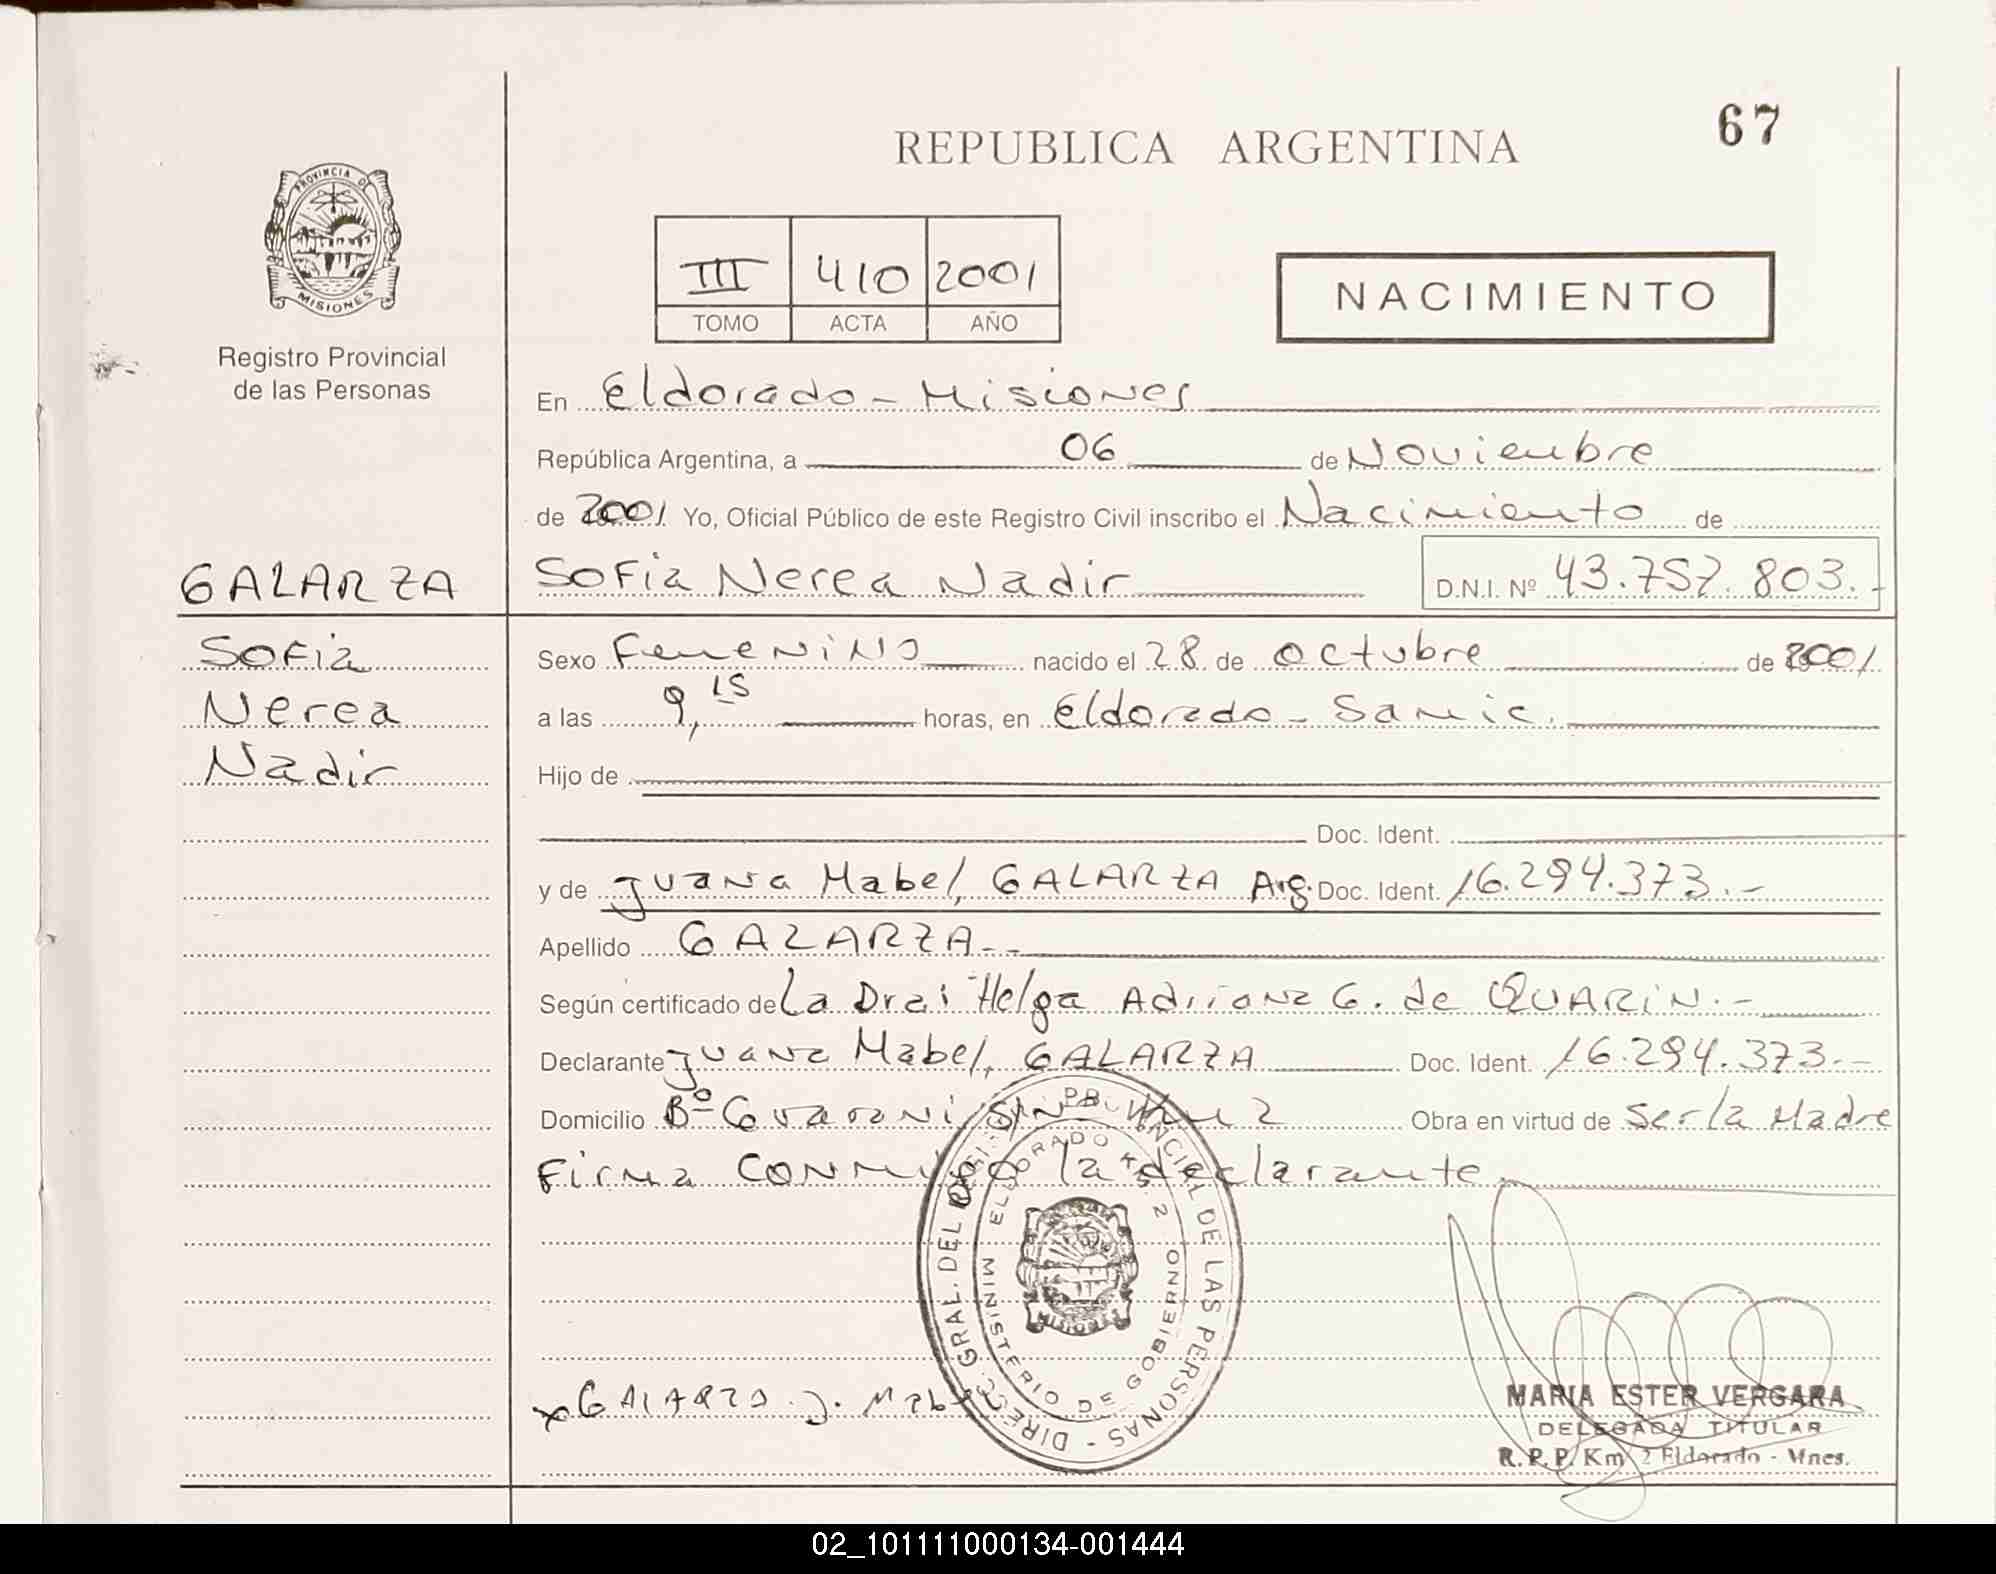 67
REPUBLICA ARGENTINA
PROVINCIA DE
MISIONES
Registro Provincial
de las Personas
III 410 2001
TOMO ACTA AÑO
NACIMIENTO
En Eldorado - Misiones
República Argentina, a 06 de Noviembre
de 2001 Yo, Oficial Público de este Registro Civil inscribo el Nacimiento de
GALARZA
Sofia Nerea Nadir D.N.I. Nº 43.757.803.-
Sofia
Nerea
Nadir
Sexo Femenino nacido el 28 de octubre de 2001
a las 9,15 horas, en Eldorado - Samic.
Hijo de
Doc. Ident.
y de Juana Mabel, GALARZA Arg. Doc. Ident. 16.294.373.-
Apellido GALARZA.-
Según certificado de La Dra: Helga Adriana G. de QUARIN.-
Declarante Juana Mabel, GALARZA Doc. Ident. 16.294.373.-
Domicilio Bº Guarani S/N Km 2 Obra en virtud de Ser la Madre
Firma conmigo la declarante.
DIRECC. GRAL. DEL REGIST. PROVINCIAL DE LAS PERSONAS -
ELDORADO KM. 2
MINISTERIO DE GOBIERNO
MISIONES
x GALARZA J. Mabel
MARIA ESTER VERGARA
DELEGADA TITULAR
R.P.P. Km 2 Eldorado - Mnes.
02_101111000134-001444